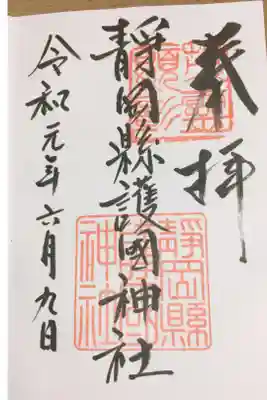 奉拝
靜岡縣護國神社
令和元年六月九日
靜岡縣護國神社